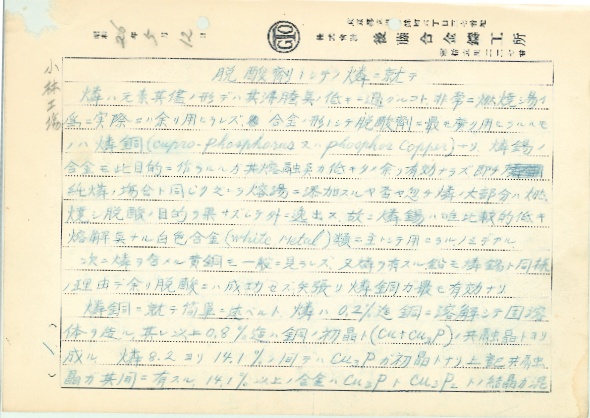 昭和 26年 5月 12日
株式会社 後藤合金鑄工所
小林工場
脱酸剤トシテノ燐ニ就テ
燐ハ元素其儘ノ形デハ其沸騰点ノ低キニ過グルコト、非常ニ燃焼易キ
為ニ実際ニハ余リ用ヒラレズ、合金ノ形トシテ脱酸剤ニ最モ旁リ用ヒラルルモ
ノハ燐銅(cupro-phosphorus 又ハ phosphor copper)ナリ、燐錫ノ
合金モ此目的ニ供ラルルガ其熔融点ガ低キタメ余リ有効ナラズ 即チ
純燐ノ場合ト同ジク之ニテ熔湯ニ添加スルヤ否ヤ忽チ燐ノ大部分ハ燃
焼シ脱酸ノ目的ヲ果サズシテ外ニ逸出ス、故ニ燐錫ハ唯比較的低キ
熔解点ナル白色合金(white metal)類ニ主トシテ用ヒラルノミデアル
次ニ燐ヲ含メル黄銅モ一般ニ見ラレズ、又燐ヲ有スル鉛モ燐錫ト同様
ノ理由デ余リ脱酸ニハ成功セズ矢張リ燐銅ガ最モ有効ナリ
燐銅ニ就テ簡単ニ述ベルト、燐ハ0.2%迄銅ニ溶解シテ固溶
体ヲ造ル、其レ以上0.8%迄ハ銅ノ初晶ト(Cu+Cu3P)ノ共融晶トヨリ
成ル 燐8.2ヨリ14.1%ノ間デハCu3Pガ初晶トナリ上記共融
晶ガ共同ニ有スル 14.1%以上ノ合金ハCu3PトCu3P2トノ結晶ガ混
(1)